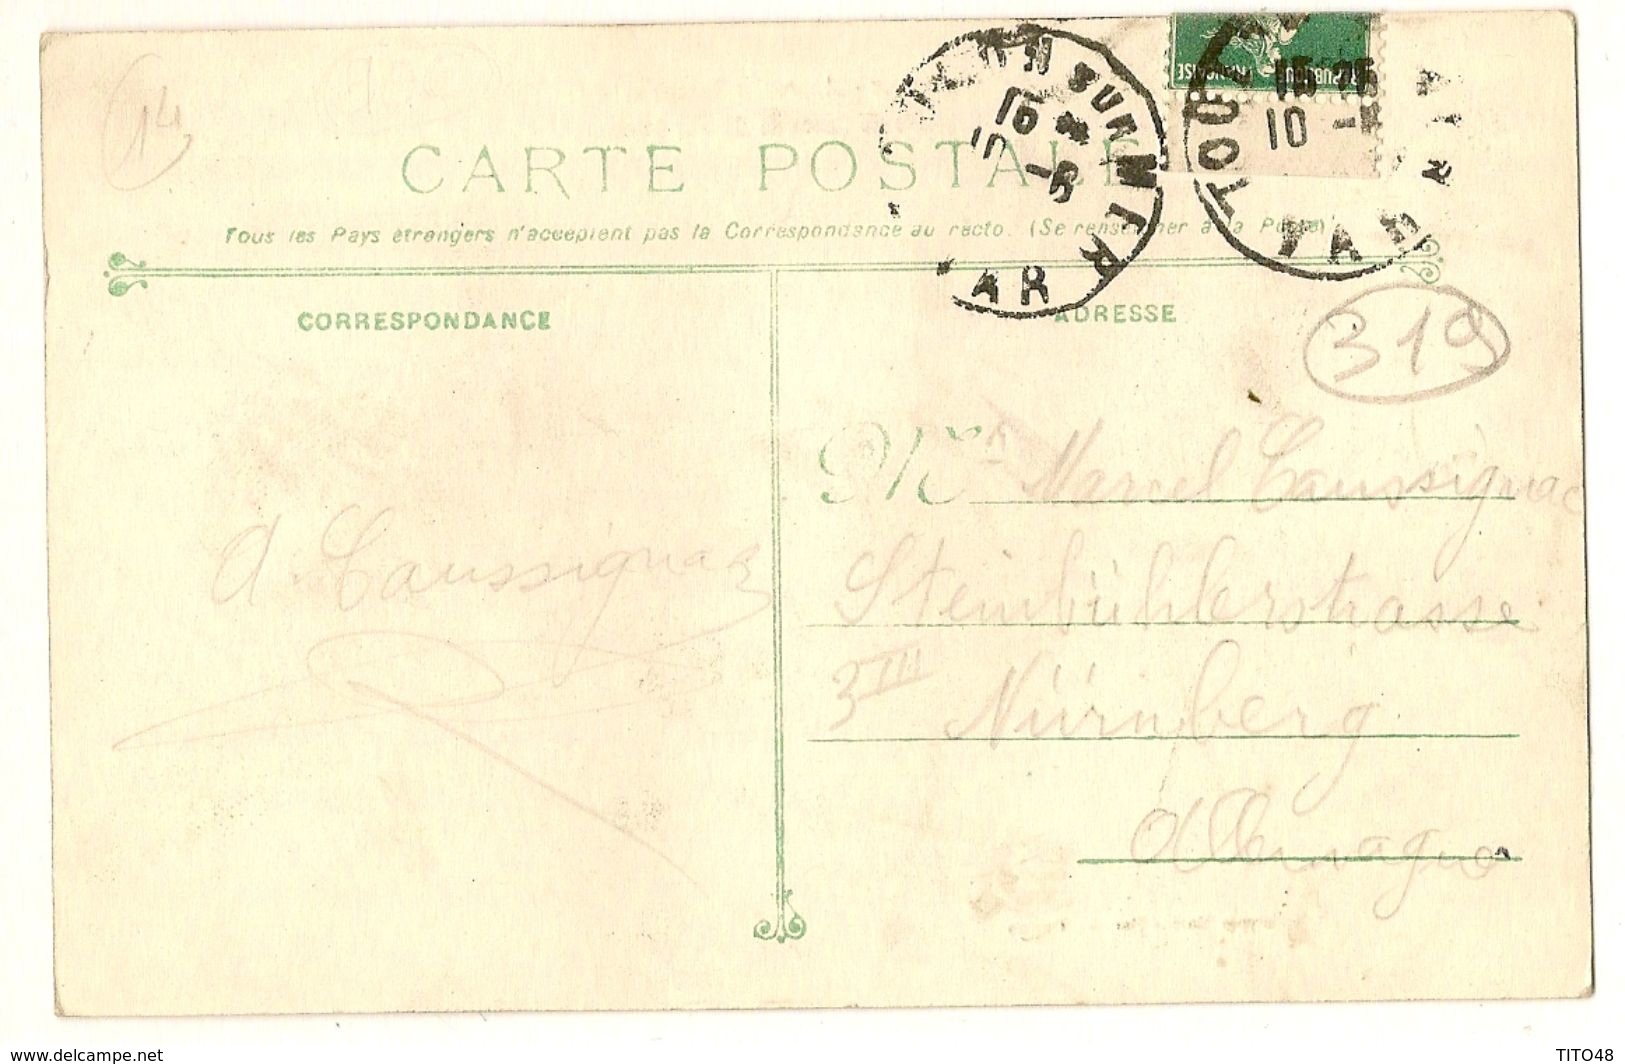 14
RÉPUBLIQUE FRANÇAISE
SUR MER
15 *
10 -5
AR
TOU
15
10
VAR
CARTE POSTALE
Tous les Pays étrangers n'acceptent pas la Correspondance au recto. (Se renseigner à la Poste)
CORRESPONDANCE
ADRESSE
319
A. Caussignac
M Marcel Caussignac
Steinbühlerstrasse
3 III Nürnberg
Allemagne
www.delcampe.net
TITO48